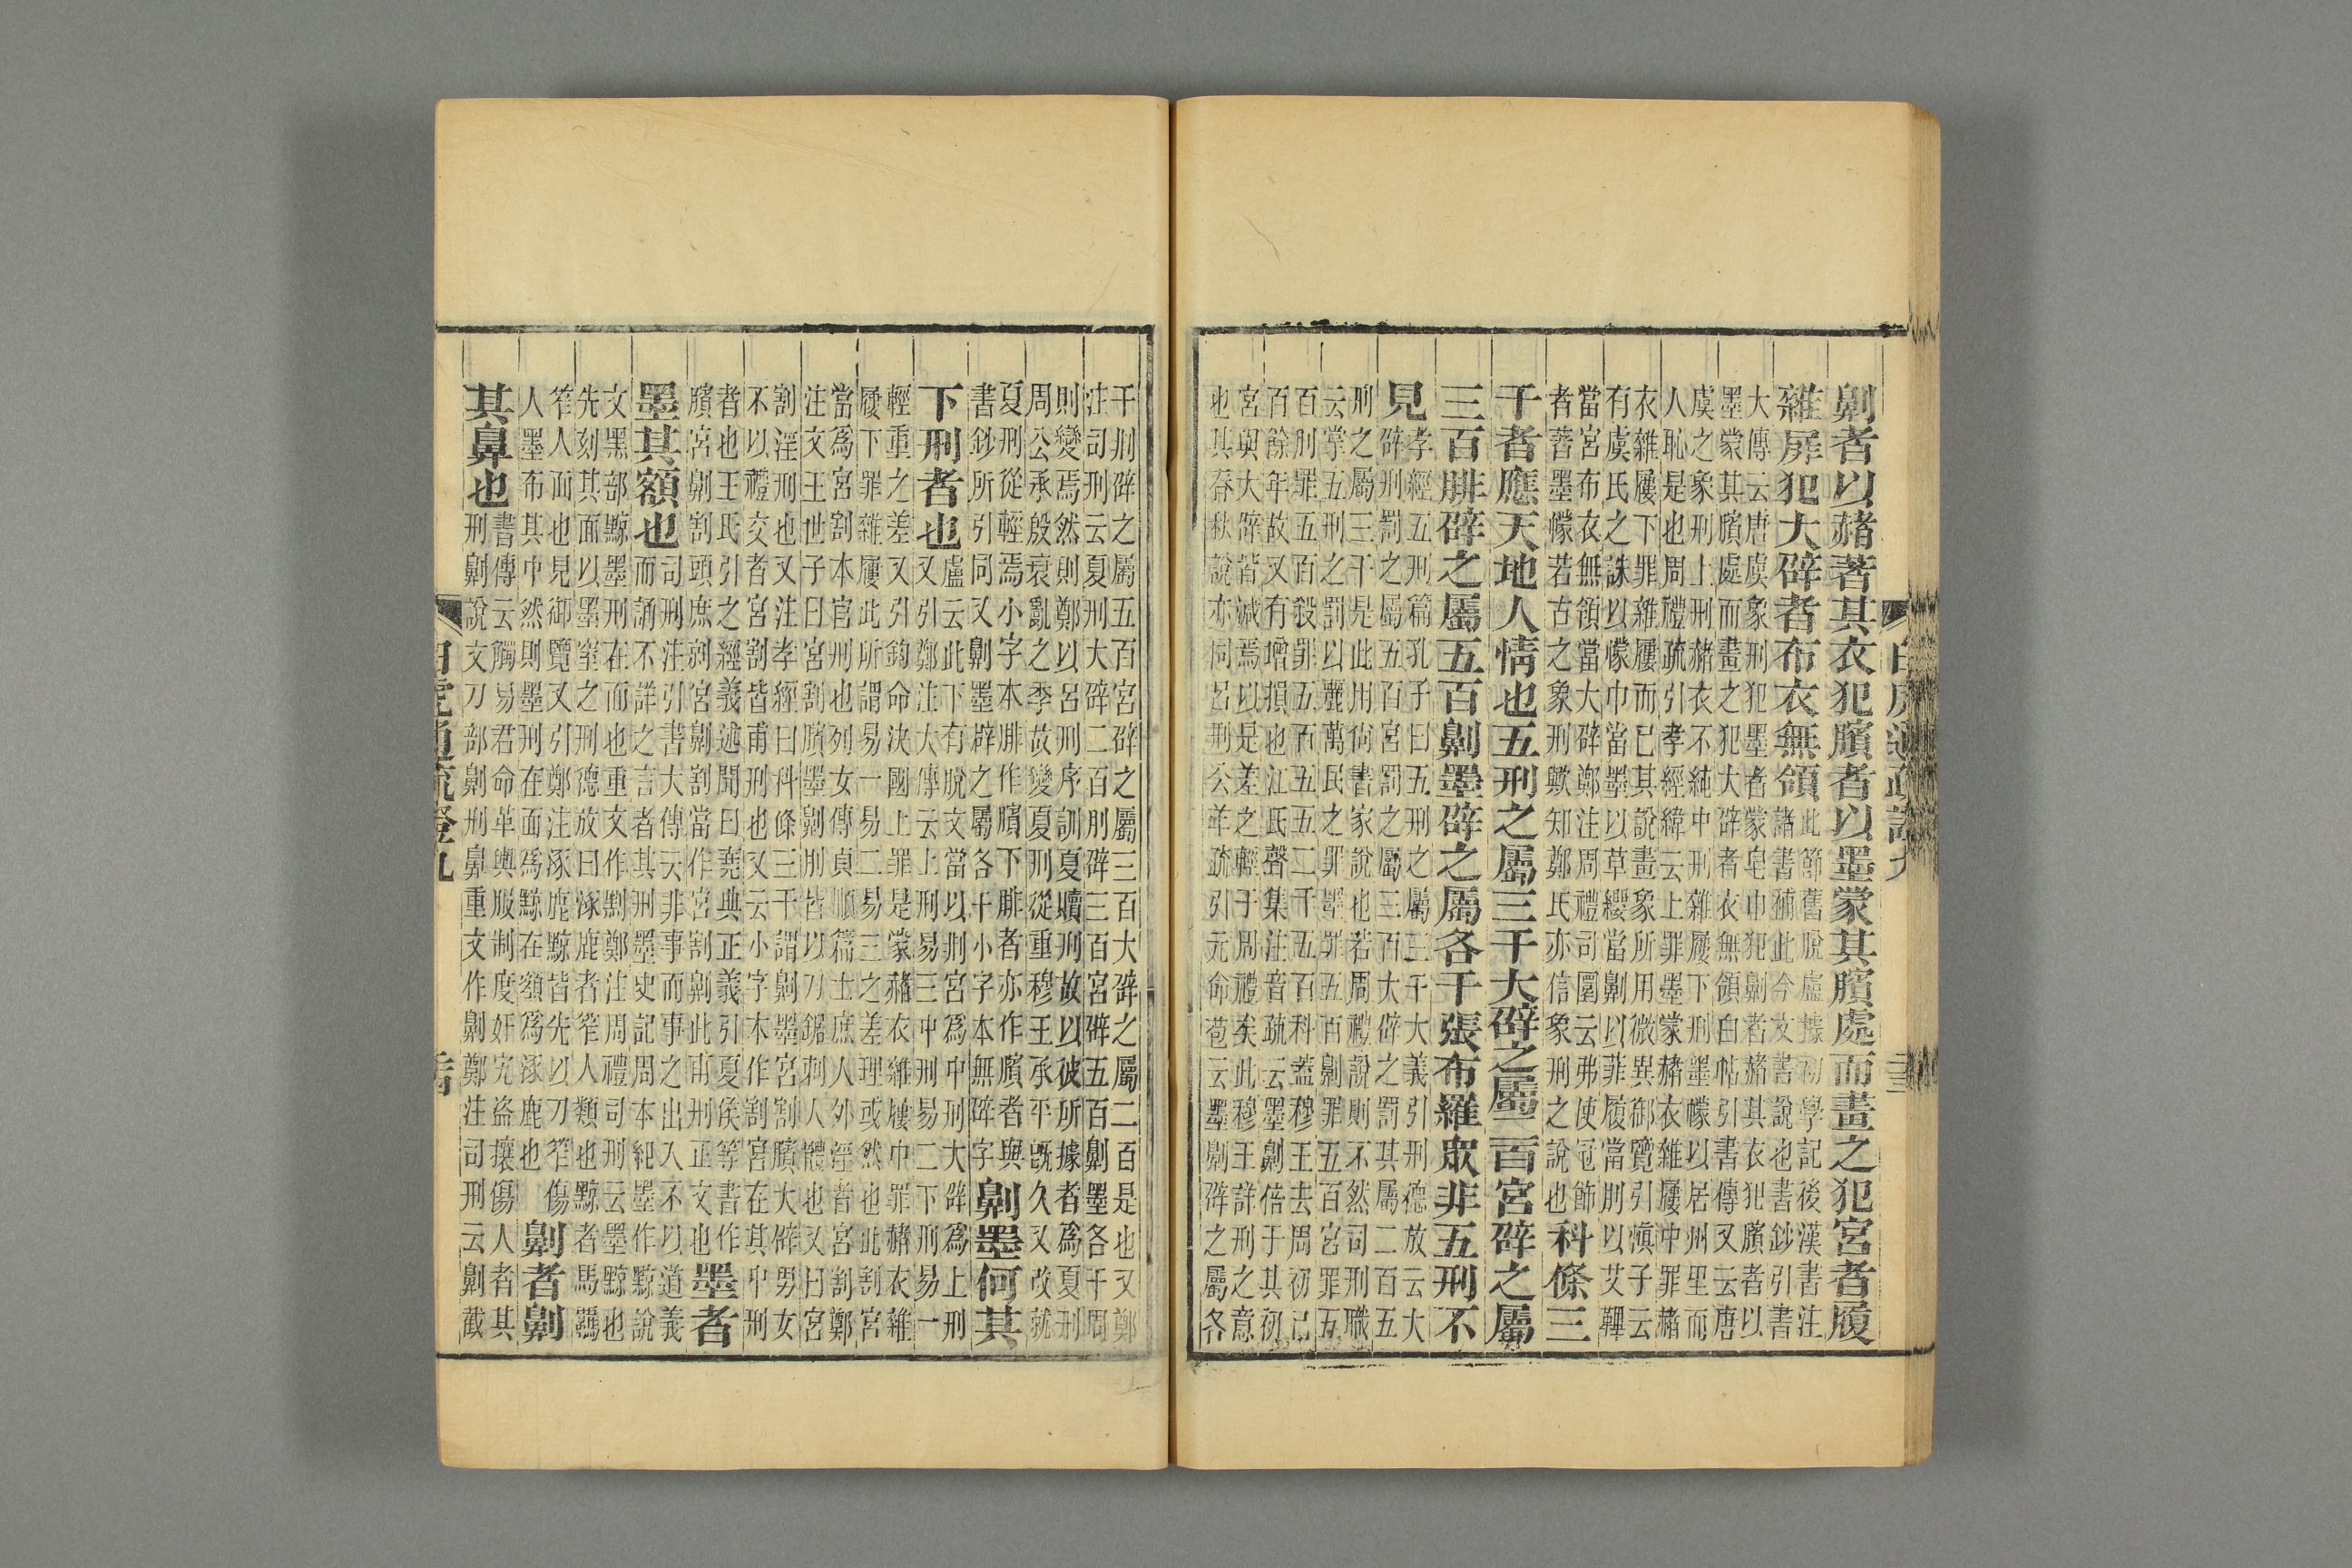 白虎通疏證九
劓者以赭著其衣犯臏者以墨蒙其臏處而畫之犯宮者履
雜屝犯大辟者布衣無領
此節舊脫盧據初學記後漢書注
諸書補此今攷書說也書鈔引書
大傳云唐虞象刑犯墨者蒙皂巾犯劓者赭其衣犯臏者以
墨蒙其臏處而畫之犯大辟者衣無領白帖引書傳又云唐
虞之象刑上刑赭衣不純中刑雜屨下刑墨幪以居州里而
人恥是也周禮疏引孝經緯云上罪墨蒙赭衣雜屨中罪赭
衣雜屨下罪雜屨而已其說畫象所用微異御覽引慎子云
有虞氏之誅以幪巾當墨以草纓當劓以菲履當刖以艾韠
當宮布衣無領當大辟鄭注周禮司圜云弗使冠飾
者著墨幪若古之象刑歟知鄭氏亦信象刑之說也
科條三
千者應天地人情也五刑之屬三千大辟之屬二百宮辟之屬
三百腓辟之屬五百劓墨辟之屬各千張布羅眾非五刑不
見
孝經五刑篇孔子曰五刑之屬三千大義引刑德放云大
辟刑罰之屬五百宮罰之屬三百大辟之罰其屬二百五
刑之屬三千是此用尙書家說也若周禮說則不然司刑職
云掌五刑之罰以麗萬民之罪墨罪五百劓罪五百宮罪五
百刖罪五百殺罪五百五五二千五百科蓋穆王去周初已
百餘年故又有增損也江氏聲集注音疏云墨劓倍于其初
宮與大辟皆減焉以是差之輕于周禮矣此穆王詳刑之意
也其春秋說亦同呂刑公羊疏引元命苞云墨劓辟之屬各
千刖辟之屬五百宮辟之屬三百大辟之屬二百是也又鄭
注司刑云夏刑大辟二百刖辟三百宮辟五百劓墨各千周
則變焉然則鄭以呂刑序訓夏贖刑故以彼所據者爲夏刑
周公承殷衰亂之季故變夏刑從重穆王承平旣久又改就
夏刑從輕焉小字本腓作臏下腓者亦作臏者與
書鈔所引同又劓墨辟之屬各千小字本無辟字
劓墨何其
下刑者也
盧云此下有脫文當以刖宮爲中刑大辟爲上刑
又引鄭注大傳云上刑易三中刑易二下刑易一
輕重之差又引鉤命決國上罪是蒙赭衣雜屨中罪赭衣雜
屨下罪雜屨此所謂易一易二易三之差理或然也此割宮
當爲宮割本宮刑也列女傳貞順篇士庶人外婬者宮割鄭
注文王世子曰宮割臏墨劓刖皆以刀鋸刺人體也又曰宮
割淫刑也又注孝經曰科條三千謂劓墨宮割臏大辟男女
不以禮交者宮割皆甫刑也又云小字本作割宮在其中刑
者也王氏引之經義述聞曰堯典正義引夏侯等書作
臏宮劓割頭庶剠宮劓割當作宮割劓此甫刑正文也
墨者
墨其額也
司刑注引書大傳云非事而事之出入不以道義
而誦不詳之言者其刑墨史記周本紀墨作黥說
文黑部黥墨刑在而也重文作剠鄭注周禮司刑云墨黥也
先刻其面以墨窒之刑德放曰涿鹿者笮人顙也黥者馬羈
笮人而也見御覽又引鄭注涿鹿黥皆先以刀笮傷
人墨布其中然則墨刑在面爲黥在額爲涿鹿也
劓者劓
其鼻也
書傳云觸易君命革輿服制度姧宄盜攘傷人者其
刑劓說文刀部劓刑鼻重文作劓鄭注司刑云劓截
白虎通疏證九